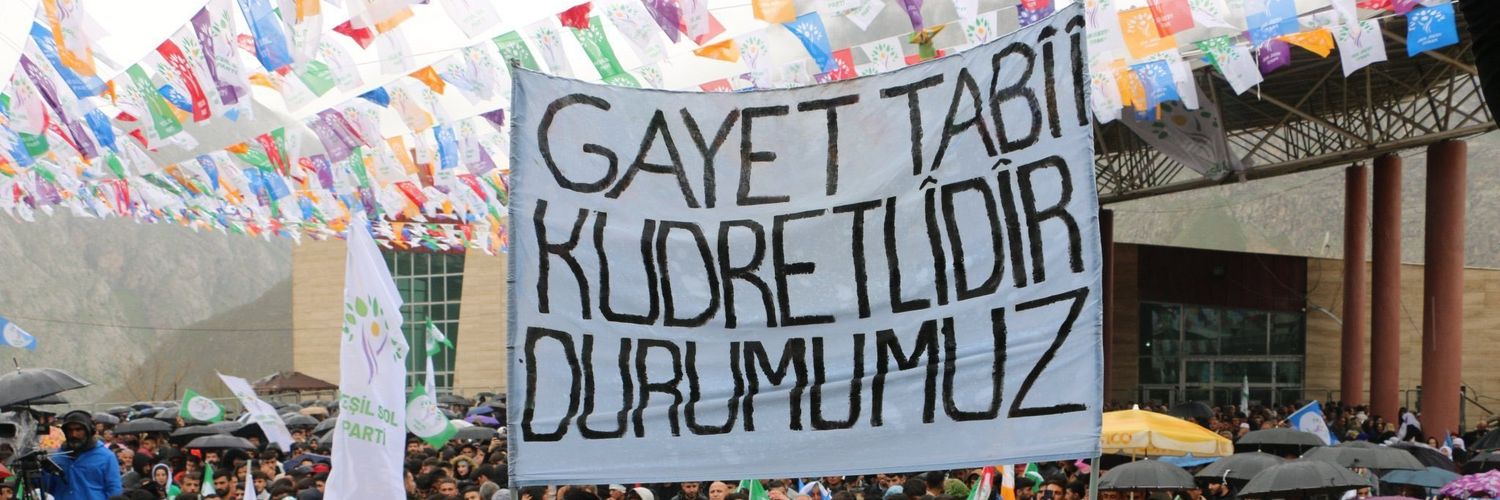 GAYET TABİİ
KUDRETLİDİR
DURUMUMUZ
YEŞİL SOL
PARTİ